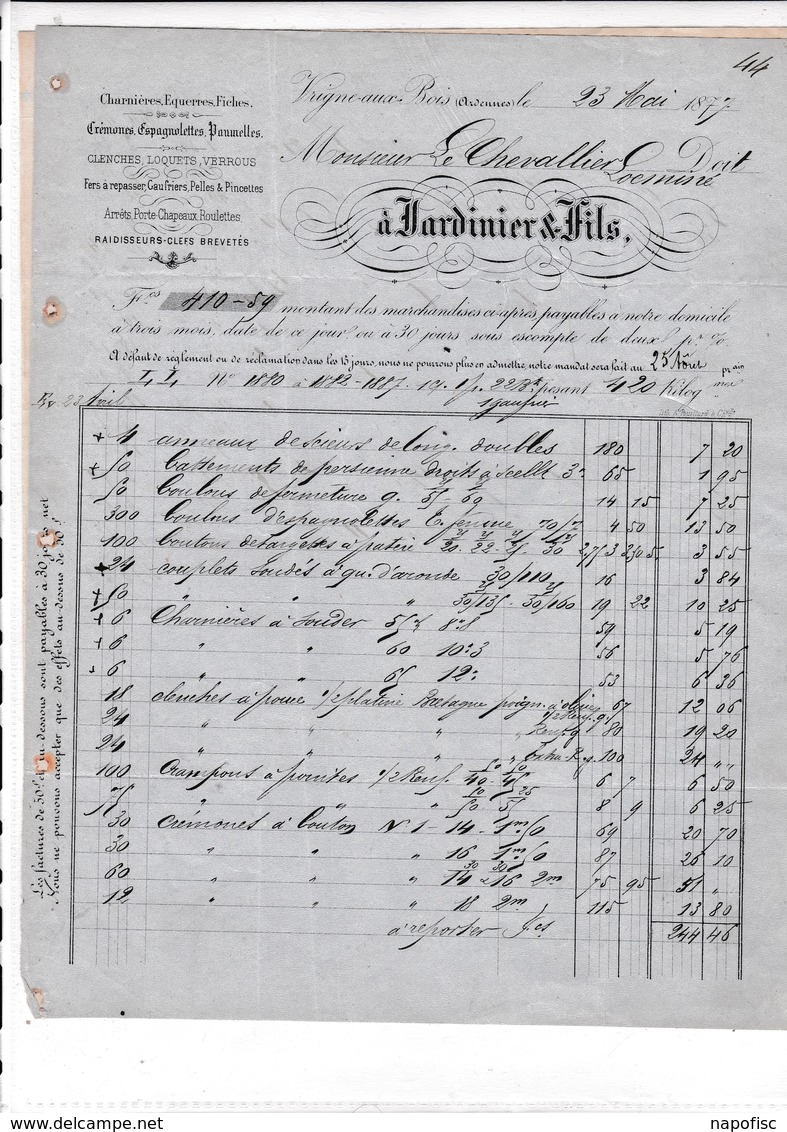 44
Charnières, Equerres, Fiches.
Crémones, Espagnolettes, Paumelles.
CLENCHES, LOQUETS, VERROUS
Fers à repasser, Gaufriers, Pelles & Pincettes
Arrêts, Porte-Chapeaux, Roulettes,
RAIDISSEURS-CLEFS BREVETÉS
Vrigne-aux-Bois (Ardennes) le 23 Mai 1877.
Monsieur Le Chevallier Doit
Locminé
à Jardinier & Fils,
Fcs 410-59 montant des marchandises ci-après payables à notre domicile
à trois mois, date de ce jour, ou à 30 jours sous escompte de deux pr %
A défaut de règlement ou de réclamation dans les 15 jours, nous ne pourrons plus en admettre, notre mandat sera fait au 25 Aôut prain
No 1880 à 1882-1887 22 pesant 420 Kilog
23 Avril
4 anneaux de scieurs de long. doubles 180 7 20
50 battements de persienne droits à scellt 3. 65 1 95
50 boulons de fermeture 9. 55 - 69 14 15 7 25
300 boulons d'espagnolettes 70/7 4 50 13 50
100 boutons de targettes à patère 20. 22. 25. 30 3 55
24 couplets soudés à qu. d'aronde 30/110 16 3 84
50 " " 30/135 - 30/160 19 22 10 25
6 Charnières à souder 55 8.8 59 5 19
6 " " 60 10.3 56 5 76
6 " " 65 12. 53 6 36
18 clenches à pouce 1/2 platine Bretagne poign. à olives 67 12 06
24 " " " 1/2 Renf. g. 80 19 20
24 " " " Extra R. g. 100 24 " "
100 Crampons à pointes 1/2 Renf. 40 - 45 6 7 6 50
75 " " " 50 - 55 8 9 6 25
30 crémones à bouton No 1 - 14 - 1m50 69 20 70
30 " " " 16 1m50 87 26 10
60 " " " 14 - 16 2m 75 95 51 "
12 " " " 18 2m 115 13 80
à reporter fcs 244 46
Les factures de 50f et au-dessous sont payables à 30 jours net
Nous ne pouvons accepter que des effets au-dessus de 50f
napofisc